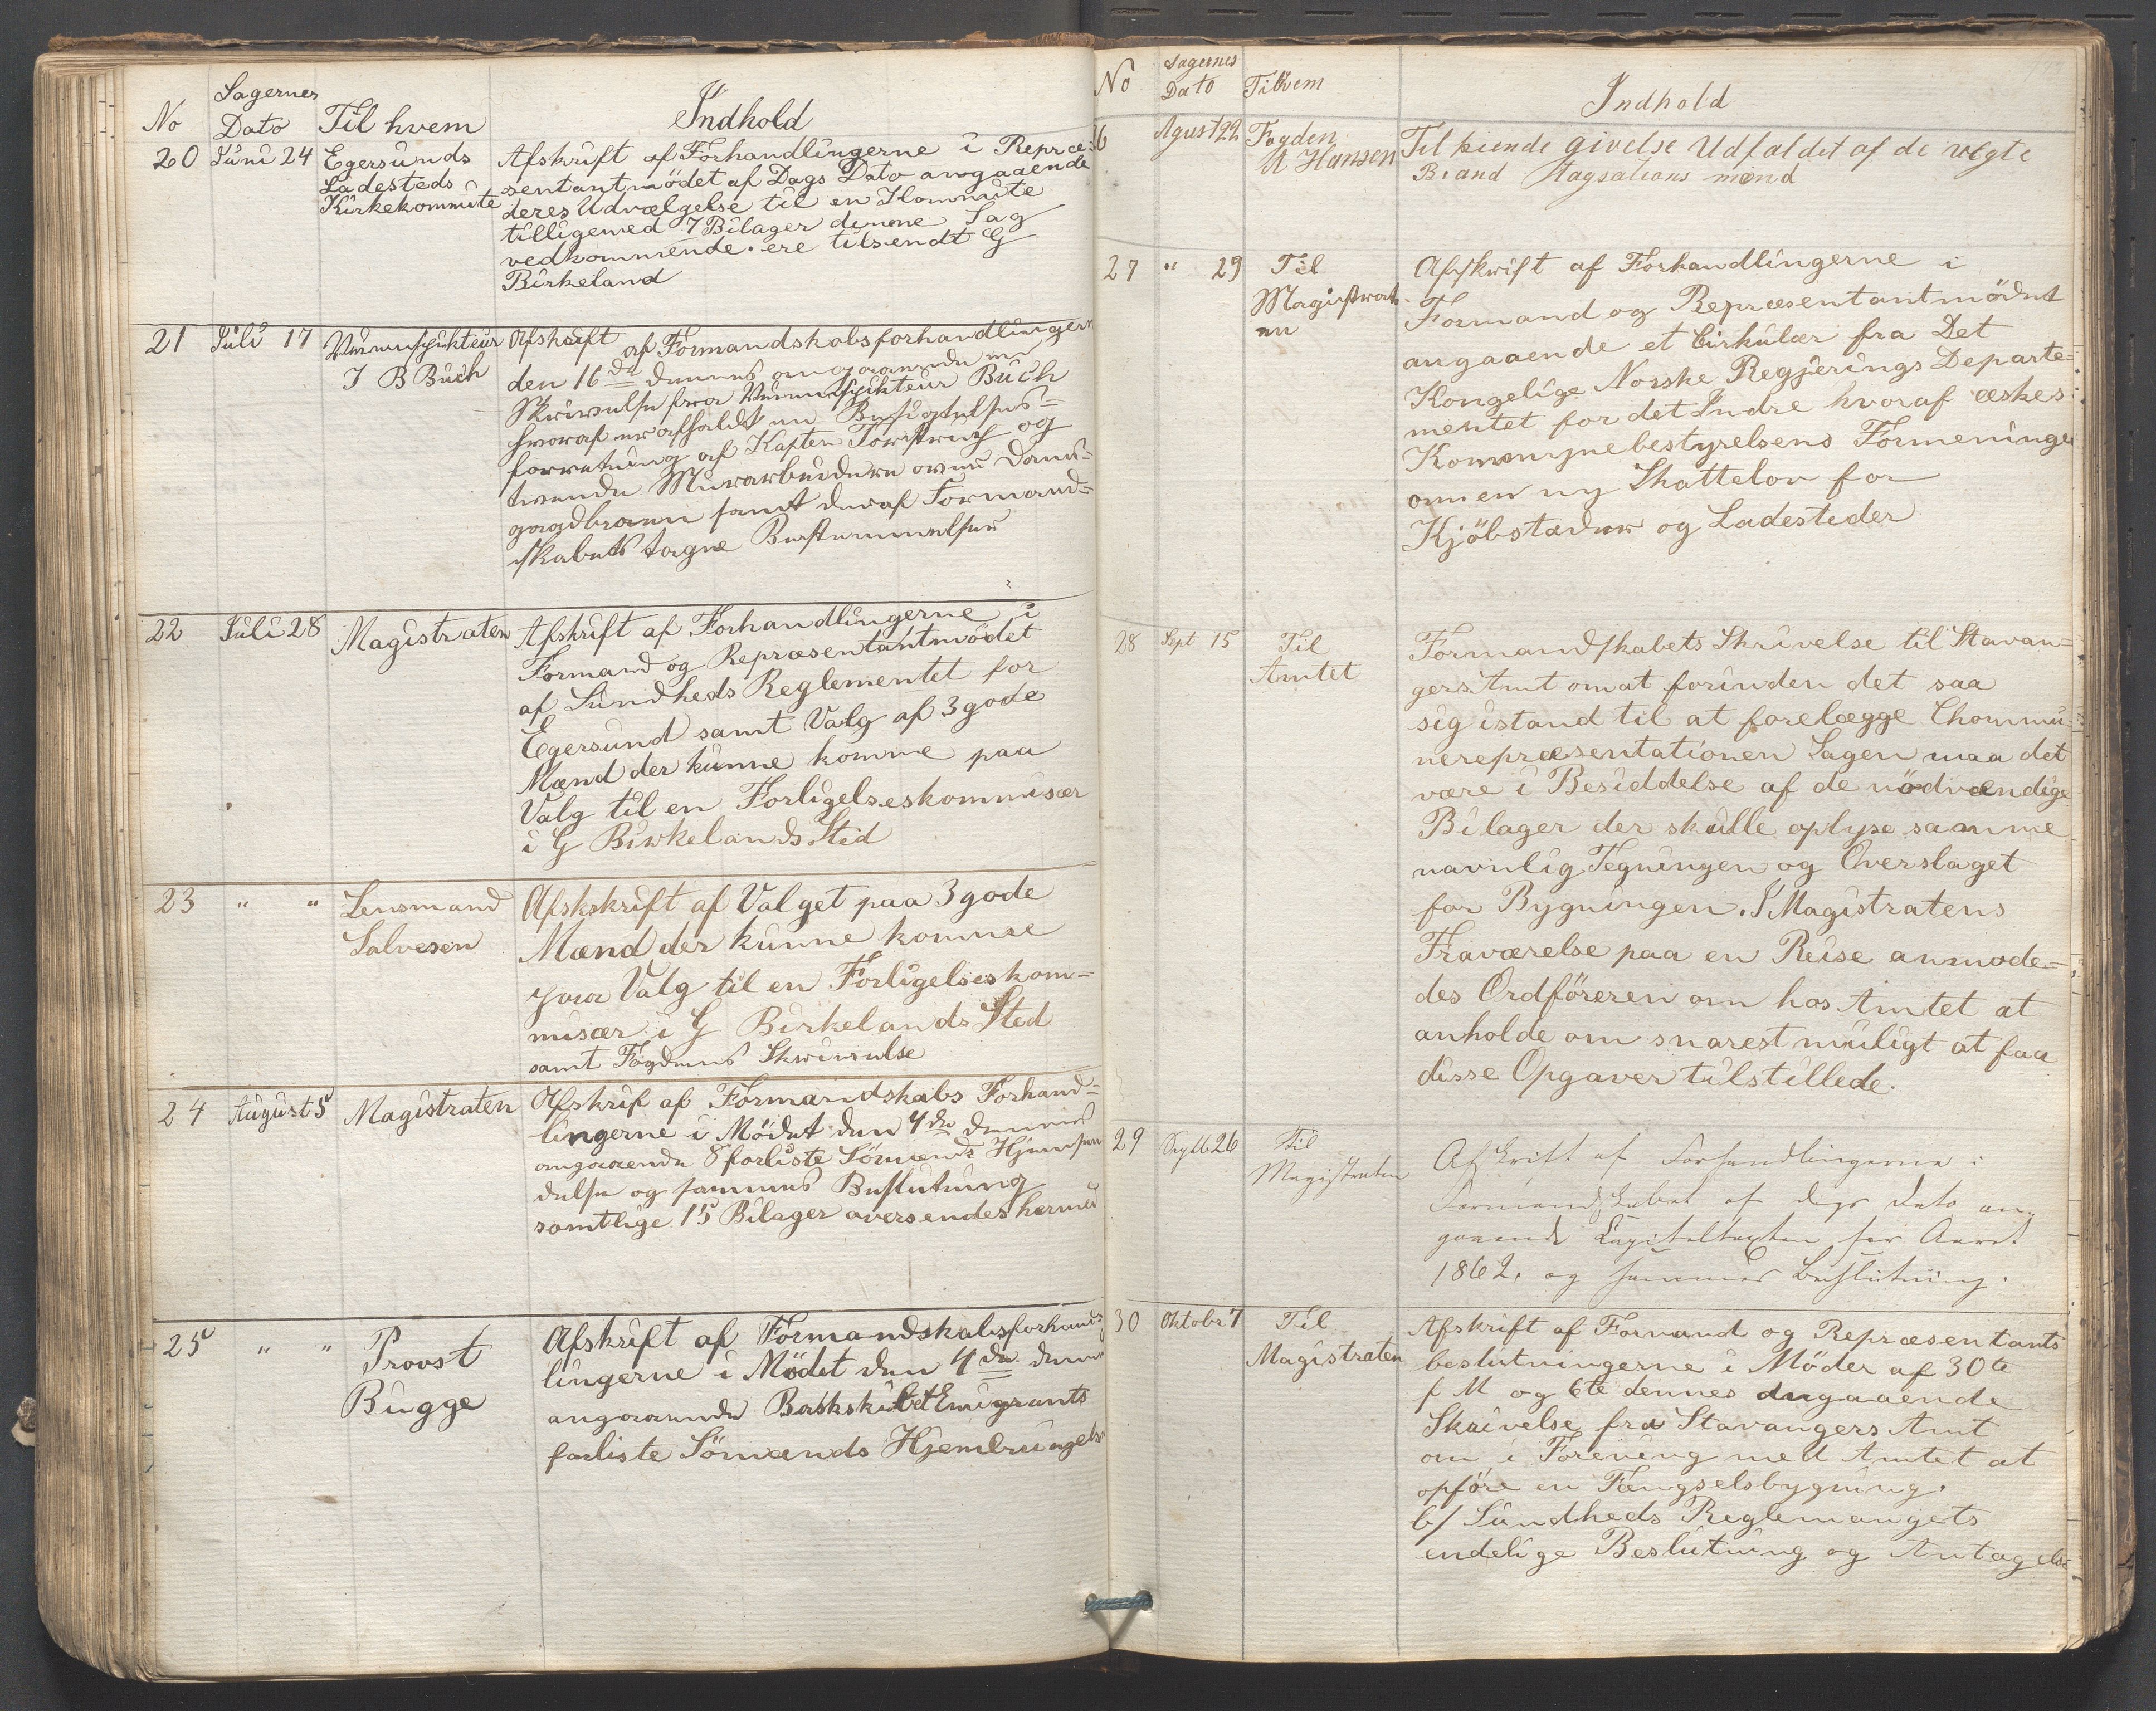 No Sagernes Dato Til hvem Indhold
20 Juni 24 Egersunds Afskrift af Forhandlingerne i Repræ-
Ladesteds sentantmödet af Dags Dato angaaende
Kirkekommite deres Udvælgelse til en Kommite
tilligemed 7 Bilager denne Sag
vedkommende. ere tilsendt G
Birkeland
21 Juli 17 Afskrift af Formandskabsforhandlingern
J B Buch den 16de dennes angaaende en
Skrivelse fra Buch
hvoraf er afholdt en Besigtelses=
forretning af Kapten og
tvende Murarbeidere over Dam-
gaadbroen samt deraf Formand=
skabets tagne Bestemmelser
22 Juli 28 Magistraten Afskrift af Forhandlingerne i
Formand og Repræsentantmödet
af Sundheds Reglementet for
Egersund samt Valg af 3 gode
Mænd der kunne komme paa
Valg til en Forligelseskommisær
i G Birkelands Sted
23 " " Lensmand Afskskrift af Valget paa 3 gode
Salvesen Mænd der kunne komme
paa Valg til en Forligelseskom-
misær i G Birkelands Sted
samt Fogdens Skrivelse
24 August 5 Magistraten Afskrif af Formandskabs Forhand=
lingerne i Mödet den 4de dennes
angaaende 8 forliste Sömænds
delse og sammes Beslutning
samtlige 15 Bilager oversendes hermed
25 " " Provst Afskrift af Formandskabsforhand=
Bugge lingerne i Mödet den 4de dennes
angaaende Barkskibet Emigrants
forliste Sömænds Hjembringelse
No Sagernes Dato Tilhvem Indhold
26 Agust 22 Fogden Tilkiende givelse Udfaldet af de valgte
A Hansen Brand Taxations mænd
27 " 29 Til Afskrift af Forhandlingerne i
Magistrat Formand og Repræsentantmödet
en angaaende et Cirkulær fra Det
Kongelige Norske Regjerings Departe=
mentet for det Indre hvoraf æskes
Kommunebestyrelsens Formeninger
om en ny Skattelov for
Kjöbstæder og Ladesteder
28 Sept 15 Til Formandskabets Skrivelse til Stavan=
Amtet gers Amt om at forinden det saa
sig istand til at forelægge Chommu=
nerepræsentationen Sagen maa det
være i Besiddelse af de nödvændige
Bilager der skulle oplyse samme
navnlig Tegningen og Overslaget
for Bygningen. I Magistratens
Fraværelse paa en Reise anmode-
des Ordföreren om hos Amtet at
anholde om snarest muligt at faa
disse Opgaver tilstillede.
29 Septb 26 Til Afskrift af Forhandlingerne i
Magistraten Formandskabet af dags Dato an-
gaaende for Aaret
1862. og sammes Beslutning.
30 Oktobr 7 Til Afskrift af Formand og Repræsentants
Magistraten beslutningerne i Möder af 30te
f M og 6te dennes angaaende
Skrivelse fra Stavangers Amt
om i Forening med Amtet at
opföre en Fængselsbygning.
b/ Sundheds Reglemangets
endelige Beslutning og Antagelse